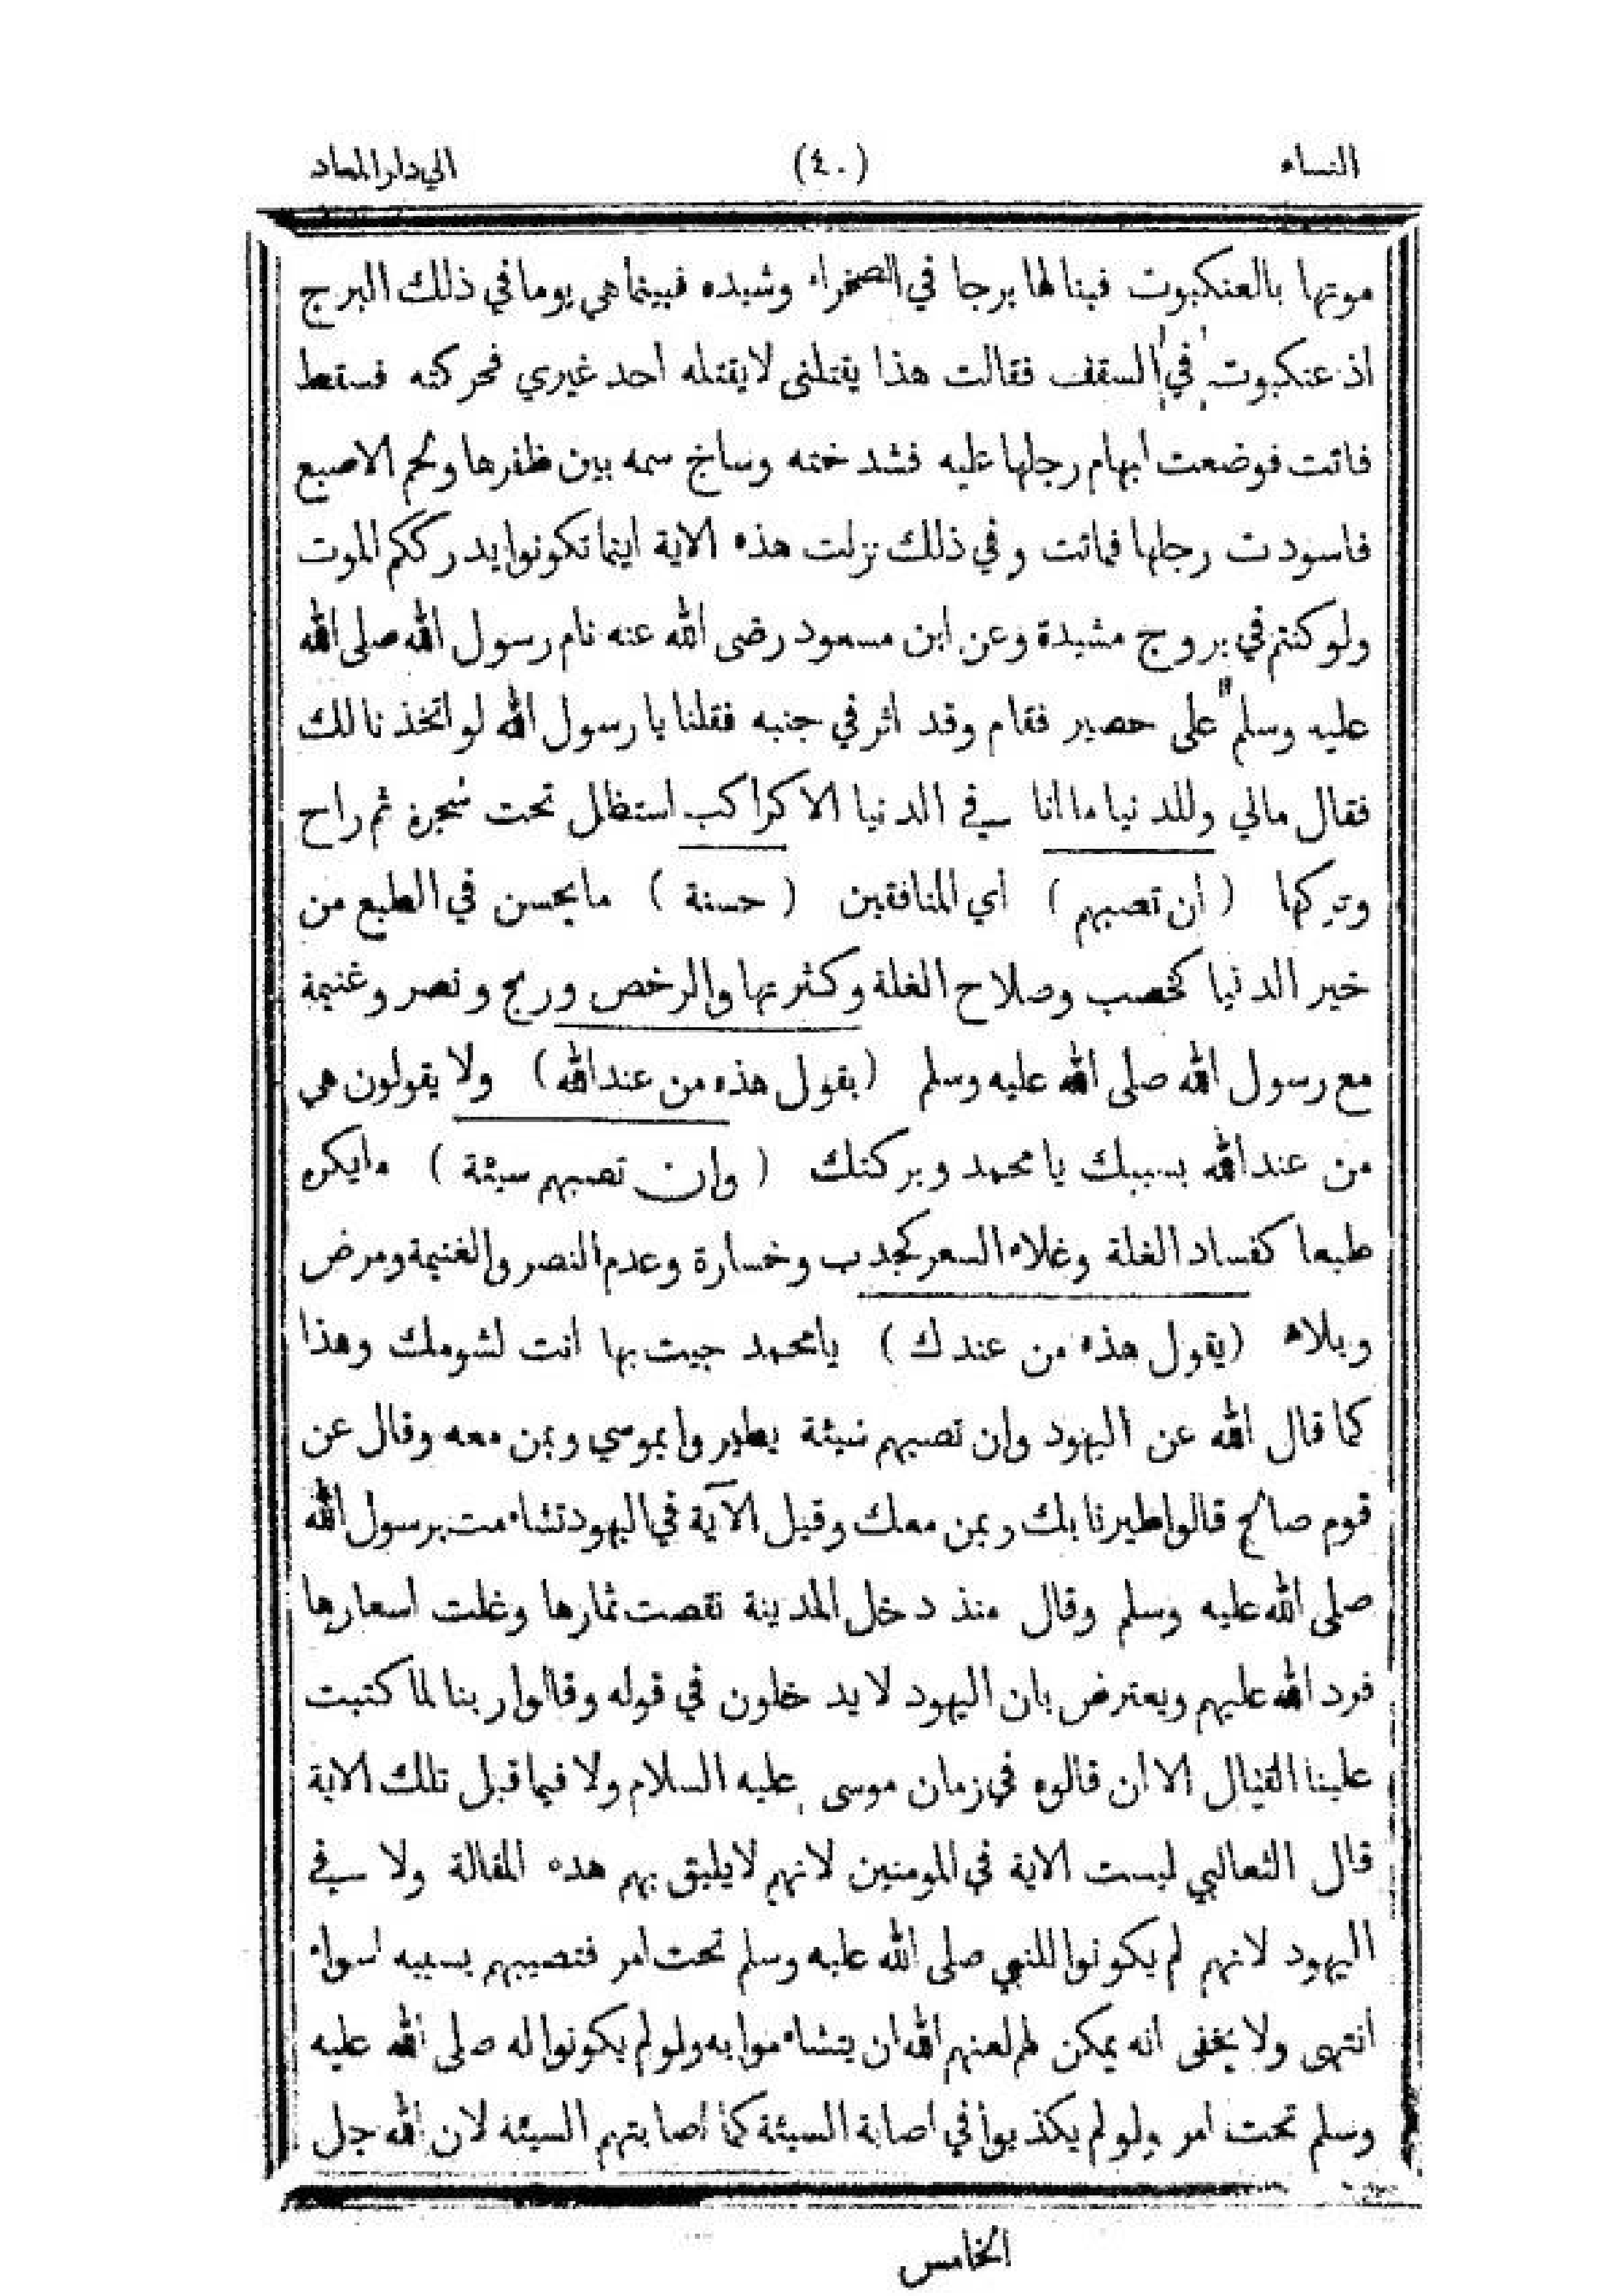 النساء (٤٠) الي دار المعاد
موتها بالعنكبوت فبنا لها برجا في الصخراء وشيده فبينما هي يوما في ذلك البرج
اذ عنكبوت في السقف فقالت هذا يقتلنى لا يقتله احد غيري فحركته فسقط
فاتت فوضعت ابهام رجلها عليه فشدخته وساخ سمه بين ظفرها ولحم الاصبع
فاسودت رجلها فماتت وفي ذلك نزلت هذه الاية اينما تكونوا يدرككم الموت
ولو كنتم في بروج مشيدة وعن ابن مسعود رضى الله عنه نام رسول الله صلى الله
عليه وسلم على حصير فقام وقد اثر في جنبه فقلنا يا رسول الله لو اتخذنا لك
فقال مالي وللدنيا ما انا في الدنيا الا كراكب استظل تحت شجرة ثم راح
وتركها ( أن تصبهم ) أي المنافقين ( حسنة ) ما يحسن في الطبع من
خير الدنيا كخصب وصلاح الغلة وكثرتها والرخص وربح ونصر وغنيمة
مع رسول الله صلى الله عليه وسلم (يقول هذه من عند الله) ولا يقولون هي
من عند الله بسببك يا محمد وبركتك ( وإن تصبهم سيئة ) ما يكره
طبعا كفساد الغلة وغلاء السعر كجدب وخسارة وعدم النصر والغنيمة ومرض
وبلاء (يقول هذه من عندك ) يا محمد جيت بها انت لشومك وهذا
كما قال الله عن اليهود وإن تصبهم سيئة يطيروا بموسي وبمن معه وقال عن
قوم صالح قالوا طيرنا بك وبمن معك وقيل الآية في اليهود تشاءمت برسول الله
صلى الله عليه وسلم وقال منذ دخل المدينة نقصت ثمارها وغلت اسعارها
فرد الله عليهم ويعترض بان اليهود لا يدخلون في قوله وقالوا ربنا لما كتبت
علينا القتال الا ان قالوه في زمان موسى عليه السلام ولا فيما قبل تلك الاية
قال الثعالبي ليست الاية في المومنين لانهم لا يليق بهم هده المقالة ولا في
اليهود لانهم لم يكونوا للنبي صلى الله عليه وسلم تحت امر فتصيبهم بسببه اسواء
انتهى ولا يخفى انه يمكن لهم لعنهم الله ان يتشاءموا به ولو لم يكونوا له صلى الله عليه
وسلم تحت امر ولو لم يكذبوا في اصابة السيئة كما اصابتهم السيئه لان الله جل
الخامس